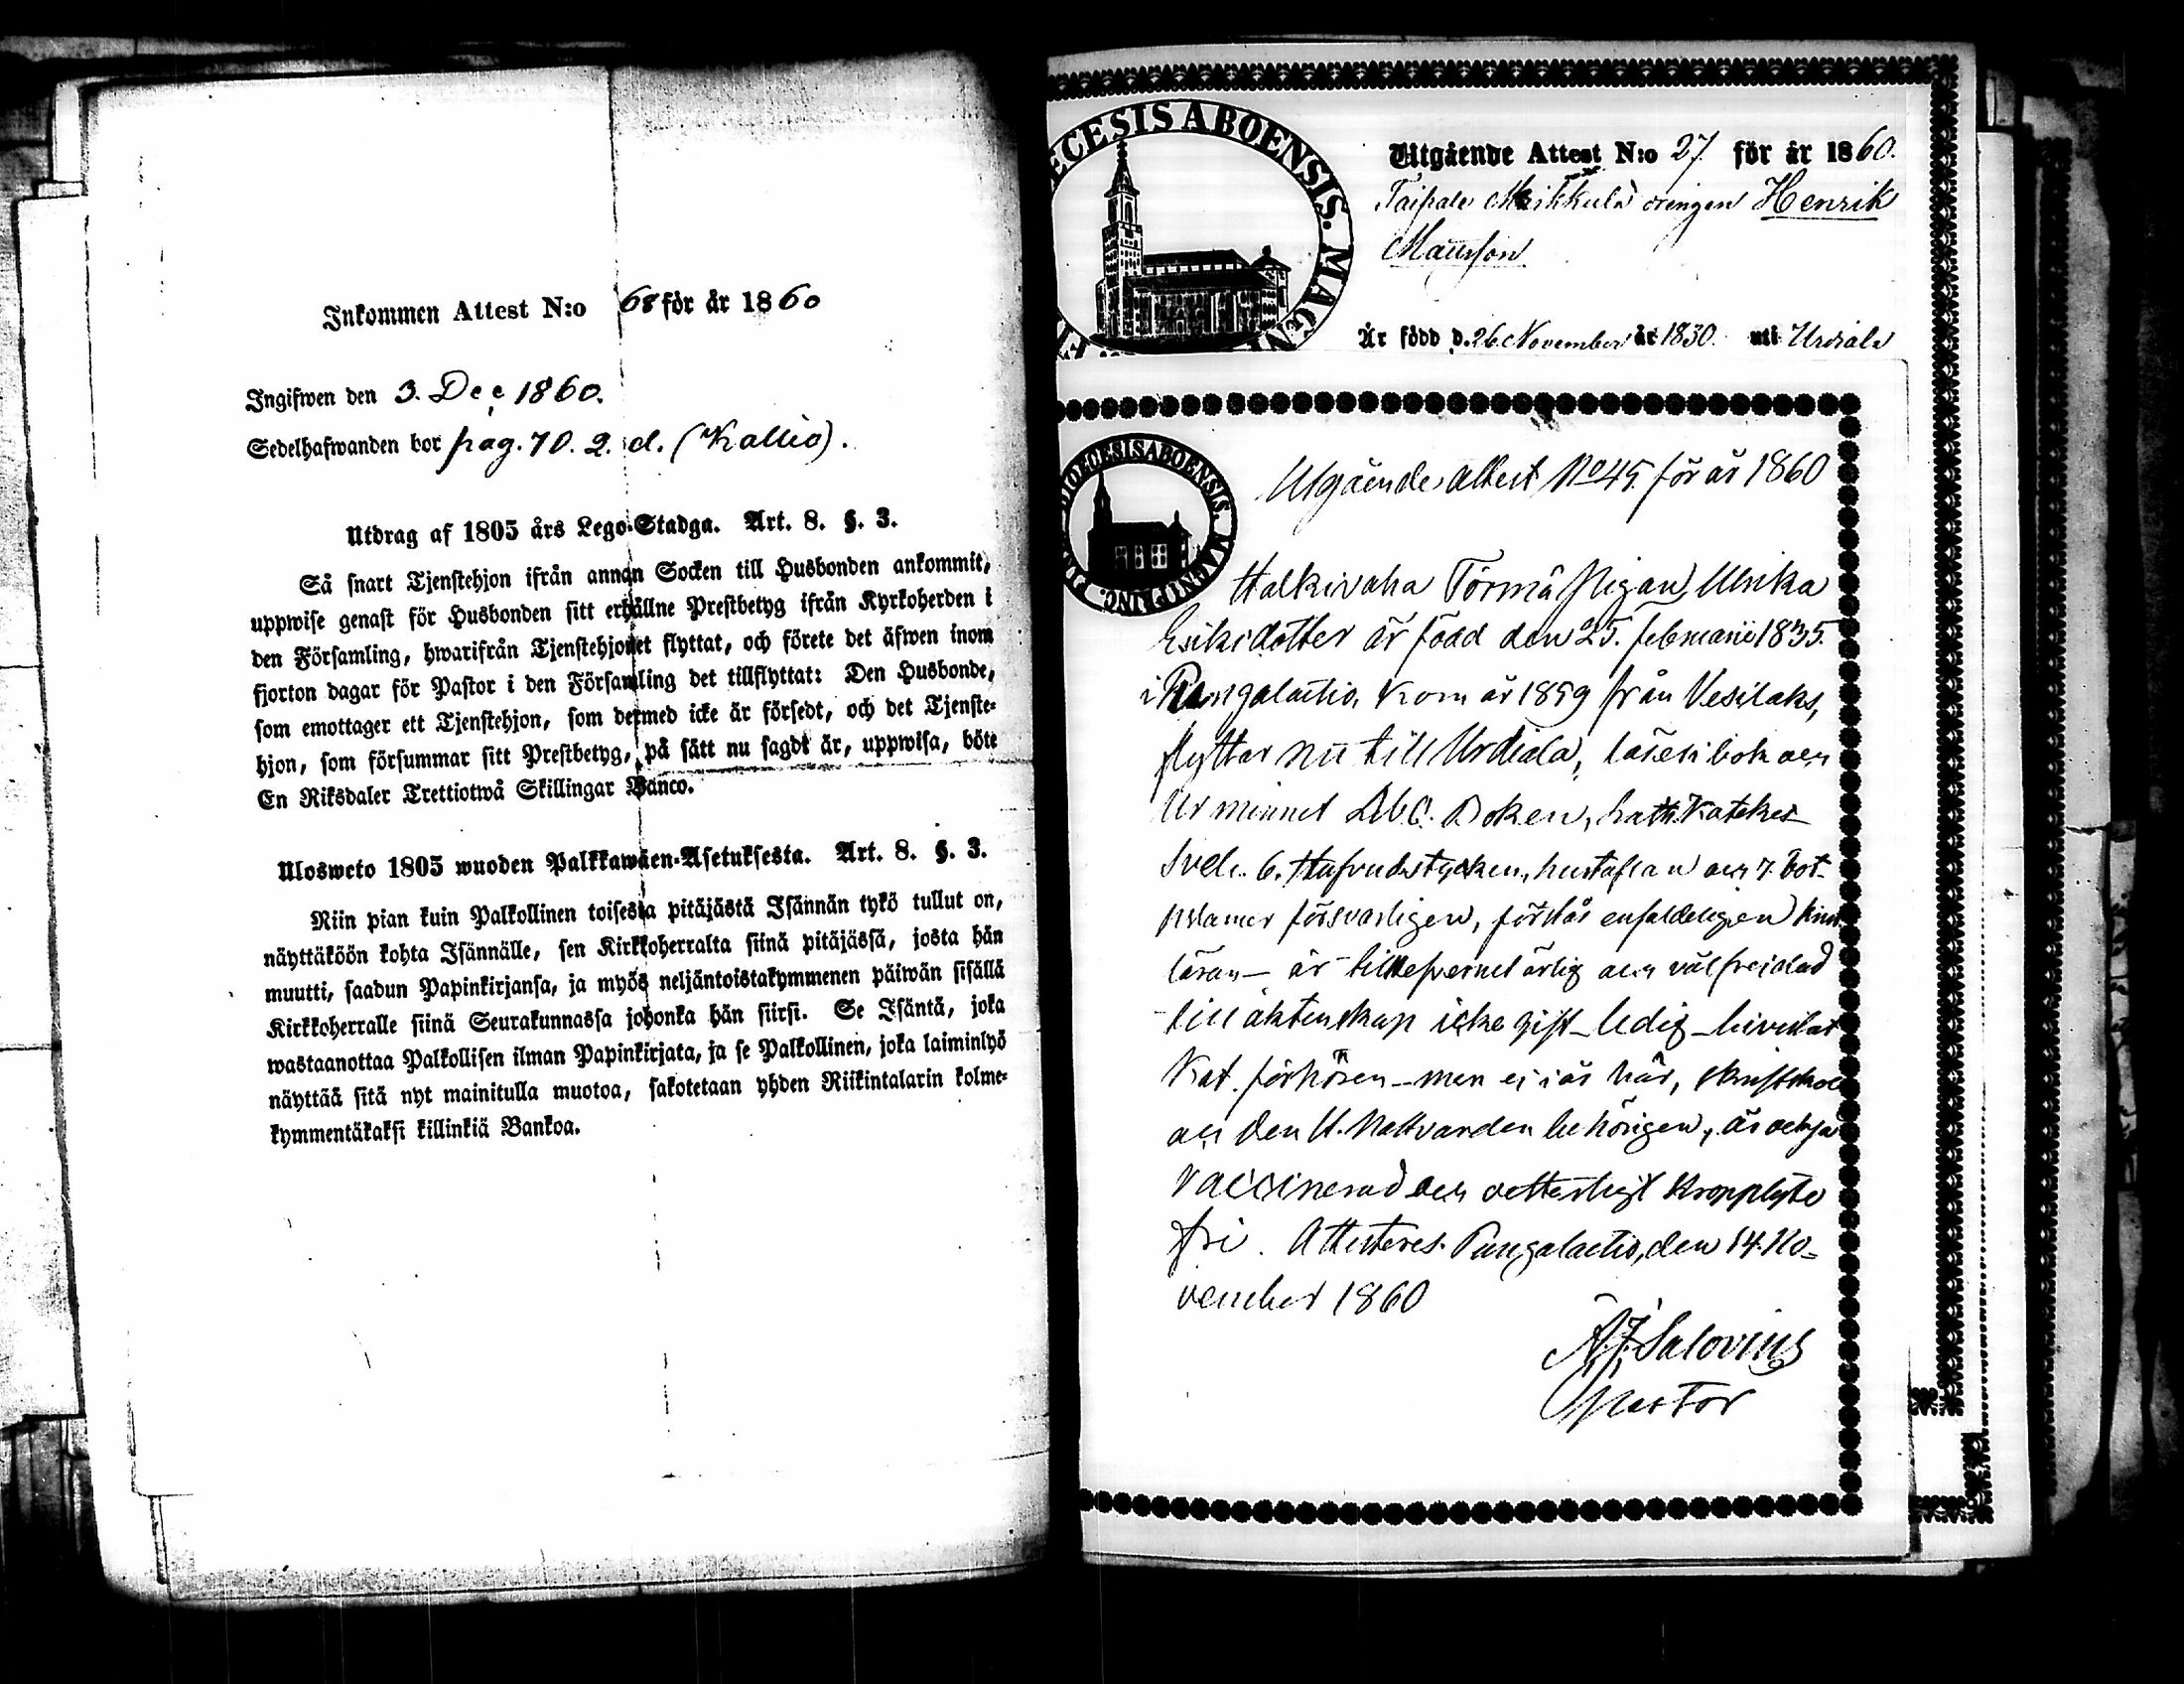 Inkommen Attest N:o 68 för år 1860
Ingifwen den 3. Dec 1860.
Sedelhafwanden bor pag. 70. 2. d. (Kallio).
Utdrag af 1805 års Lego-Stadga. Art. 8. §. 3.
Så snart Tjenstehjon ifrån annan Socken till Husbonden ankommit,
uppwise genast för Husbonden sitt erhållne Prestbetyg ifrån Kyrkoherden i
den Församling, hwarifrån Tjenstehjonet flyttat, och förete det äfwen inom
fjorton dagar för Pastor i den Församling det tillflyttat: Den Husbonde,
som emottager ett Tjenstehjon, som dermed icke är försedt, och det Tjenste-
hjon, som försummar sitt Prestbetyg, på sätt nu sagdt är, uppwisa, böte
En Riksdaler Trettiotwå Skillingar Banco.
Ulosweto 1805 wuoden Palkkawäen-Asetuksesta. Art. 8. §. 3.
Niin pian kuin Palkollinen toisesta pitäjästä Isännän tykö tullut on,
näyttäköön kohta Isännälle, sen Kirkkoherralta siinä pitäjässä, josta hän
muutti, saadun Papinkirjansa, ja myös neljäntoistakymmenen päiwän sisällä
Kirkkoherralle siinä Seurakunnassa johonka hän siirsi. Se Isäntä, joka
wastaanottaa Palkollisen ilman Papinkirjata, ja se Palkollinen, joka laiminlyö
näyttää sitä nyt mainitulla muotoa, sakotetaan yhden Riikintalarin kolme-
kymmentäkaksi killinkiä Bankoa.
DIOECESIS ABOENSIS. MAGNI
Utgående Attest N:o 27. för år 1860.
Taipale drengen Henrik
Mattsson
Är född d. 26 November år 1830. uti Urdiala
DIOECESIS ABOENSIS. MAGNI PRINC.
Utgående attest No 45. för år 1860
Halkivaha Törmä pigan Ulrika
Eriksdotter är född den 25. februarii 1835.
i Pungalaitio, kom år 1859 från Vesilaks,
flyttar nu till Urdiala, läser i bok och
ur minnet Abc. Boken, Luth. Katekes
Sveb. 6. Hufvudstycken, hustaflan och 7. bot-
psalmer försvarligen, förstår enfaldeligen
läran – är till lefvernet ärlig och välfrejdad
till äktenskap icke gift – ledig – bivistat
Kat. förhören – men ej i år här, skriftskol
och den H. Nattvarden behörigen, är ock
vaccinerad och vetterligt kropplyte
fri. Attesteres. Pungalaitio, den 14. No-
vember 1860
A. J. Salovius
Pastor